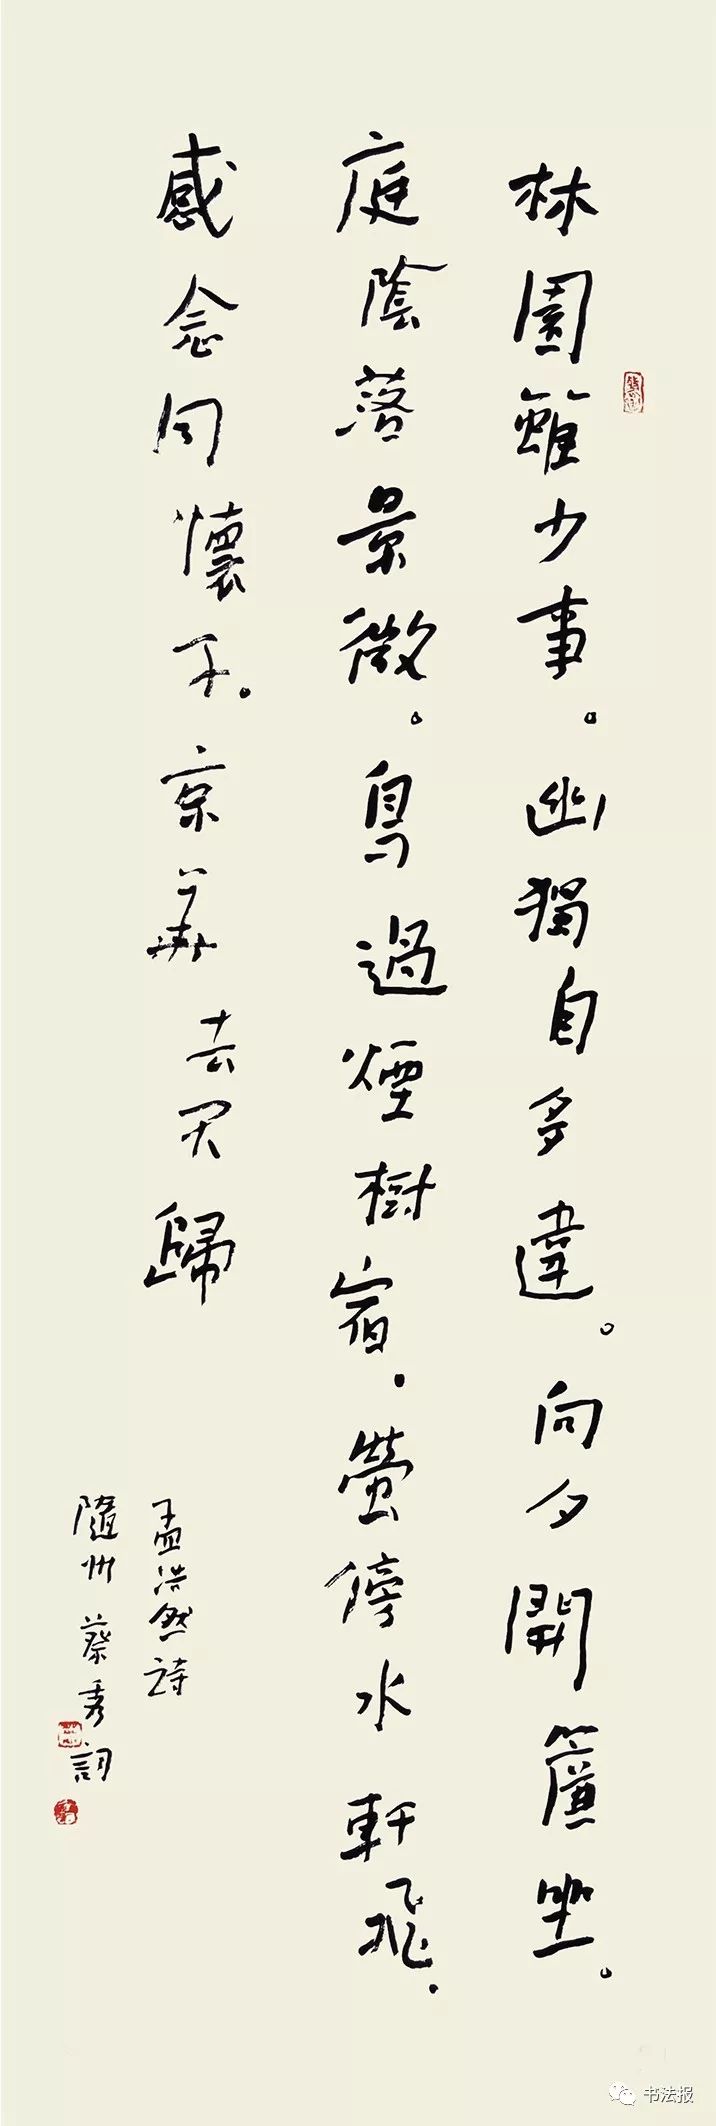 林園雖少事。幽獨自多違。向夕開簾坐。
庭陰落景微。鳥過煙樹宿。螢傍水軒飛。
感念同懷子。京華去不歸
孟浩然詩
隨州蔡秀詞
书法报